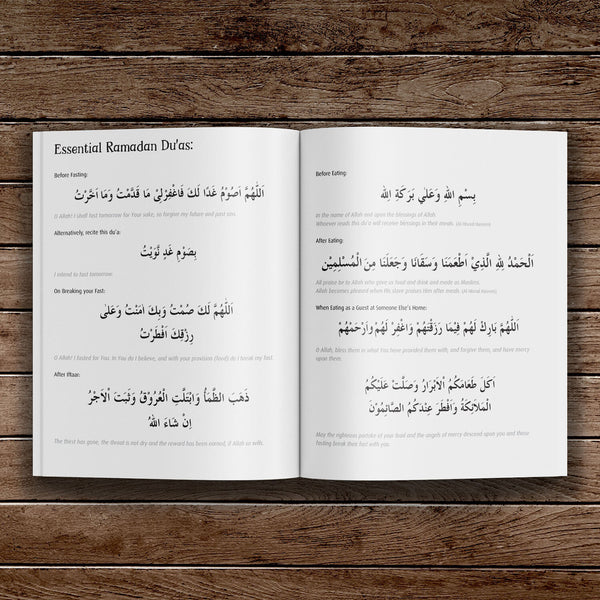 Essential Ramadan Du'as:
Before Fasting:
اَللّٰهُمَّ اَصُوْمُ غَدًا لَكَ فَاغْفِرْلِىْ مَا قَدَّمْتُ وَمَا اَخَّرْتُ
O Allah! I shall fast tomorrow for Your sake, so forgive my future and past sins.
Alternatively, recite this du'a:
بِصَوْمِ غَدٍ نَّوَيْتُ
I intend to fast tomorrow.
On Breaking your Fast:
اَللّٰهُمَّ لَكَ صُمْتُ وَبِكَ اٰمَنْتُ وَعَلٰى
رِزْقِكَ اَفْطَرْتُ
O Allah! I fasted for You. In You do I believe, and with your provision (food) do I break my fast.
After Iftaar:
ذَهَبَ الظَّمَأُ وَابْتَلَّتِ الْعُرُوْقُ وَثَبَتَ الْاَجْرُ
اِنْ شَاءَ اللّٰهُ
The thirst has gone, the throat is not dry and the reward has been earned, if Allah so wills.
Before Eating:
بِسْمِ اللهِ وَعَلٰي بَرَكَةِ اللهِ
In the name of Allah and upon the blessings of Allah.
Whoever reads this du'a will receive blessings in their meals. (Al-Mustadrak Haakim)
After Eating:
اَلْحَمْدُ لِلّٰهِ الَّذِيْ اَطْعَمَنَا وَسَقَانَا وَجَعَلَنَا مِنَ الْمُسْلِمِيْنَ
All praise be to Allah who gave us food and drink and made us Muslims.
Allah becomes pleased when His slave praises Him after meals.
When Eating as a Guest at Someone Else's Home:
اَللّٰهُمَّ بَارِكْ لَهُمْ فِيْمَا رَزَقْتَهُمْ وَاغْفِرْ لَهُمْ وَارْحَمْهُمْ
O Allah, bless them in what You have provided them with, and forgive them, and have mercy
upon them.
اَكَلَ طَعَامَكُمُ الْاَبْرَارُ وَصَلَّتْ عَلَيْكُمُ
الْمَلَائِكَةُ وَاَفْطَرَ عِنْدَكُمُ الصَّائِمُوْنَ
May the righteous partake of your food and the angels of mercy descend upon you and those
fasting break their fast with you.